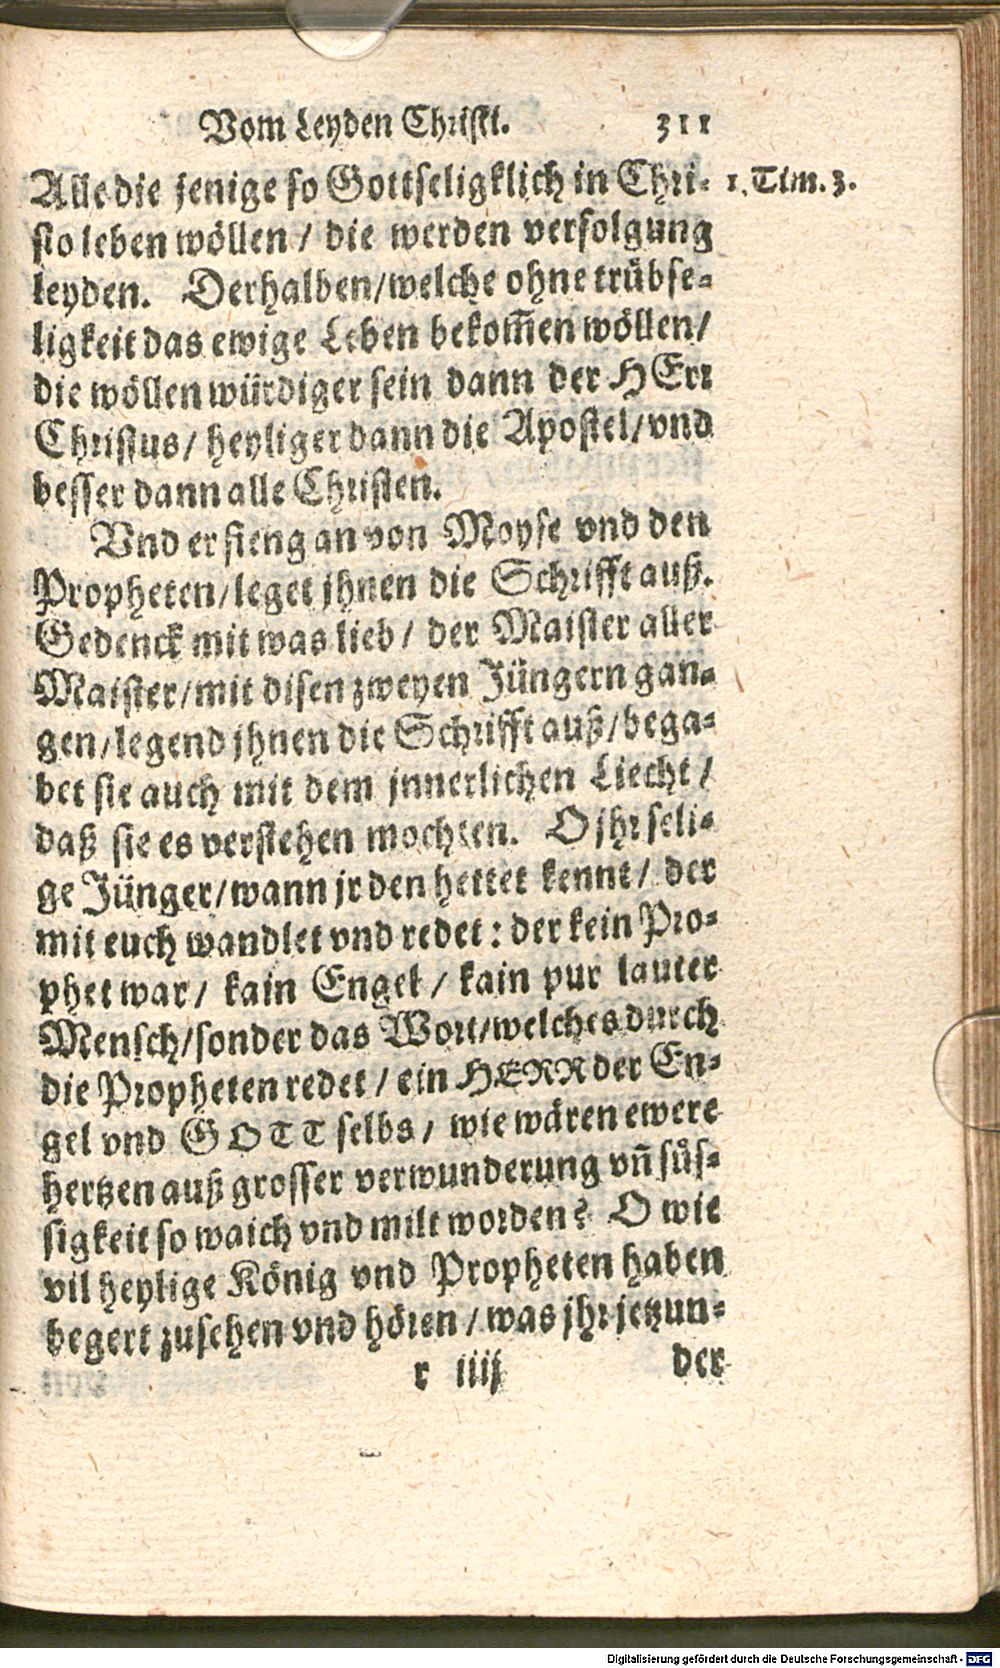 Vom Leyden Christi. 311
Alle die jenige so Gottseligklich in Chri- 1. Tim. 3.
sto leben wöllen / die werden verfolgung
leyden. Derhalben/welche ohne trübse-
ligkeit das ewige Leben bekom̃en wöllen/
die wöllen würdiger sein dann der HErr
Christus/ heyliger dann die Apostel/vnd
besser dann alle Christen.
Vnd er fieng an von Moyse vnd den
Propheten/leget jhnen die Schrifft auß.
Gedenck mit was lieb/ der Maister aller
Maister/mit disen zweyen Jüngern gan-
gen/legend jhnen die Schrifft auß/bega-
bet sie auch mit dem jnnerlichen Liecht/
daß sie es verstehen mochten. O jhr seli-
ge Jünger/wann jr den hettet kennt/ der
mit euch wandlet vnd redet: der kein Pro-
phet war/ kain Engel/ kain pur lauter
Mensch/sonder das Wort/welches durch
die Propheten redet/ ein HERR der En-
gel vnd GOTT selbs/ wie wären ewere
hertzen auß grosser verwunderung vñ süs-
sigkeit so waich vnd milt worden? O wie
vil heylige König vnd Propheten haben
begert zusehen vnd hören/was jhr jetzun-
r iiij der
Digitalisierung gefördert durch die Deutsche Forschungsgemeinschaft - DFG